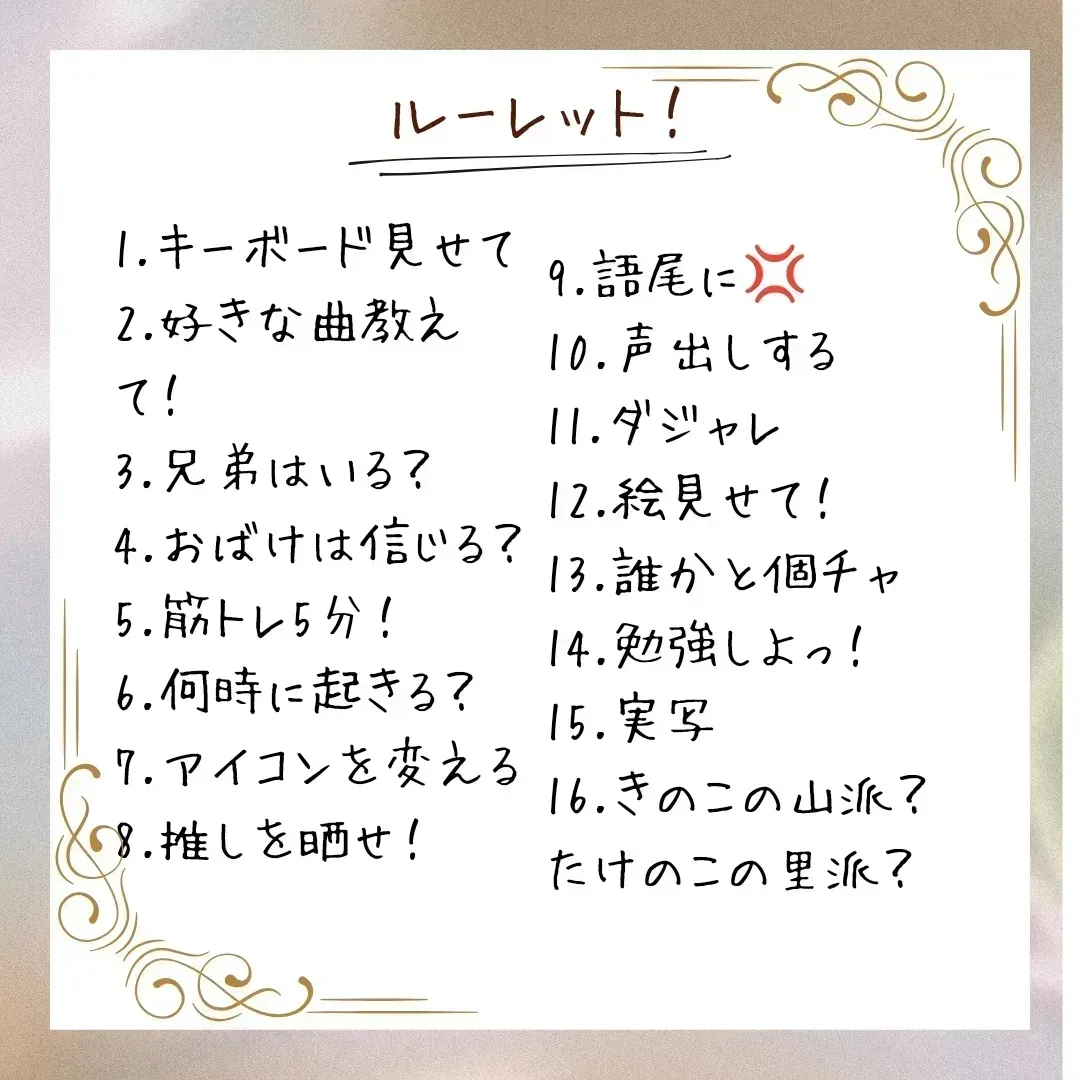 ルーレット！
1.キーボード見せて
2.好きな曲教え
て！
3.兄弟はいる？
4.おばけは信じる？
5.筋トレ5分！
6.何時に起きる？
7.アイコンを変える
8.推しを晒せ！
9.語尾に💢
10.声出しする
11.ダジャレ
12.絵見せて！
13.誰かと個チャ
14.勉強しよっ！
15.実写
16.きのこの山派？
たけのこの里派？